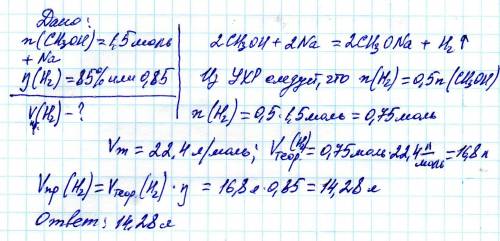 Дано:
n(CH₃OH)=1,5моль
+ Na
y(H₂)=85% или 0,85
Vпр.(H₂)-?
2CH₃OH+2Na=2CH₃ONa+H₂↑
Из УХР следует, что n(H₂)=0,5n(CH₃OH)
n(H₂)=0,5·1,5моль=0,75моль
Vm=22,4л/моль; Vтеор.(H₂)=0,75моль·22,4 л/моль=16,8л
Vпр(H₂)=Vтеор.(H₂)·y=16,8л·0,85=14,28л
Ответ: 14,28л